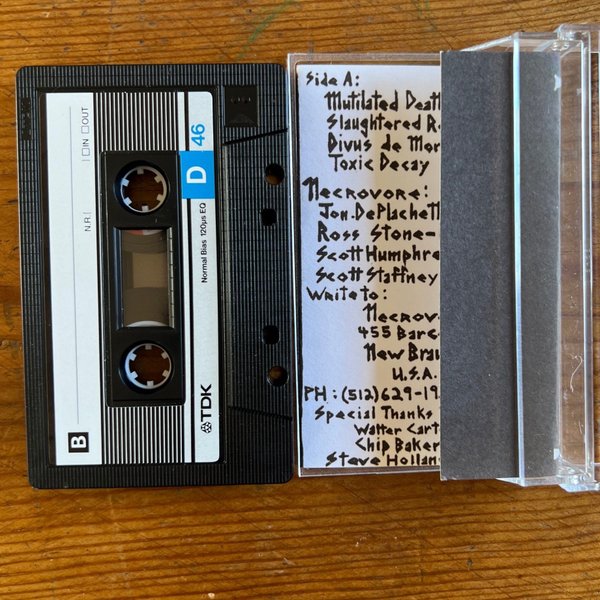 B
N.R.
IN OUT
D 46
Normal Bias 120µs EQ
TDK
Side A:
Mutilated Deat
Slaughtered R
Divus de Mor
Toxic Decay
Necrovore:
Jon DePlachett
Ross Stone-
Scott Humphre
Scott Staffney
Write to:
Necrovo
455 Barc
New Brau
U.S.A.
PH: (512)629-19
Special Thanks
Walter Cart
Chip Baker
Steve Hollan